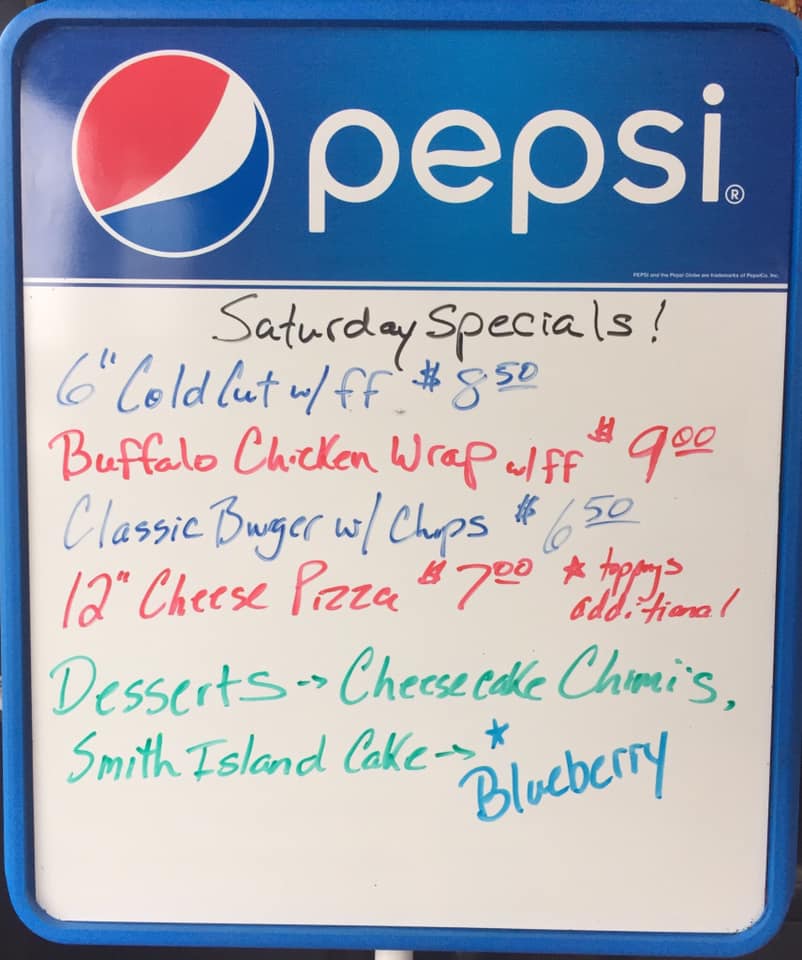 pepsi®
PEPSI and the Pepsi Globe are trademarks of PepsiCo, Inc.
Saturday Specials!
6" Cold Cut w/ ff $8.50
Buffalo Chicken Wrap w/ff $9.00
Classic Burger w/ Chips $6.50
12" Cheese Pizza $7.00 * toppings
additional
Desserts -> Cheesecake Chimi's,
Smith Island Cake -> *
Blueberry